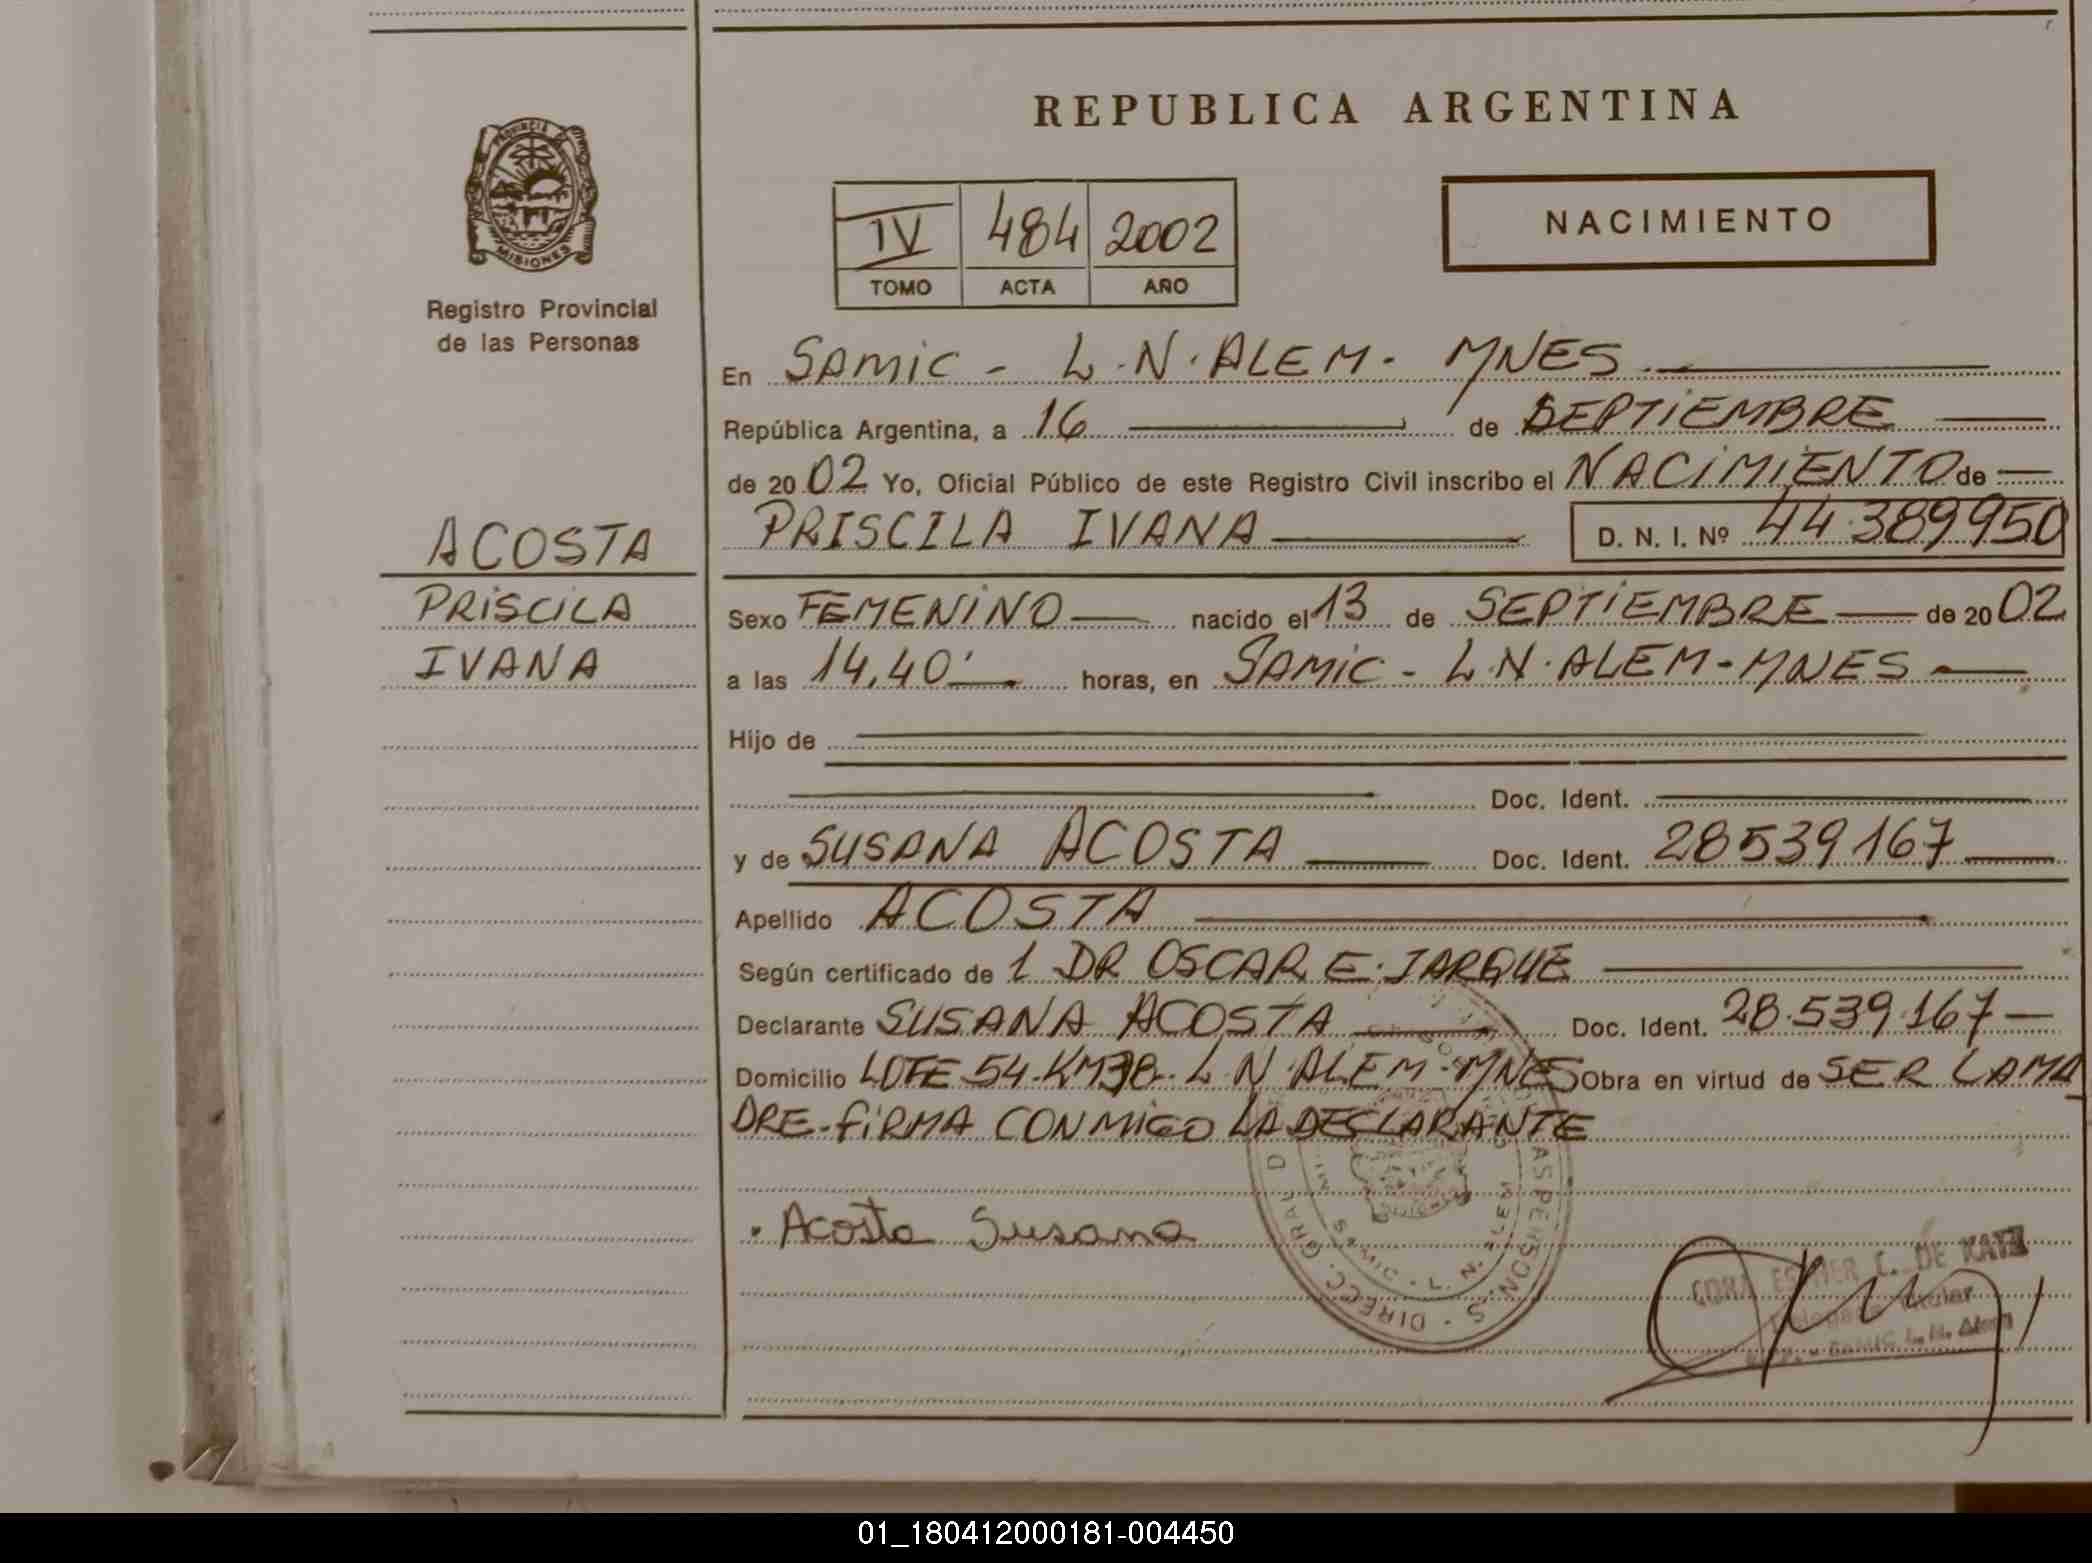 REPUBLICA ARGENTINA
PROVINCIA DE
MISIONES
Registro Provincial
de las Personas
IV 484 2002
TOMO ACTA AÑO
NACIMIENTO
En SAMIC - L.N. ALEM - MNES
República Argentina, a 16 de SEPTIEMBRE
de 2002 Yo, Oficial Público de este Registro Civil inscribo el NACIMIENTO de
PRISCILA IVANA D. N. I. Nº 44.389950
ACOSTA
PRISCILA
IVANA
Sexo FEMENINO nacido el 13 de SEPTIEMBRE de 2002
a las 14,40' horas, en SAMIC - L.N. ALEM - MNES
Hijo de
Doc. Ident.
y de SUSANA ACOSTA Doc. Ident. 28539167
Apellido ACOSTA
Según certificado de 1 DR OSCAR E. JARQUE
Declarante SUSANA ACOSTA Doc. Ident. 28.539.167
Domicilio LOTE 54-KM38-L N ALEM-MNES Obra en virtud de SER LA MA
DRE-FIRMA CONMIGO LA DECLARANTE
Acosta Susana
DIREC. GRAL D
AS PERSONAS
L. N. ALEM
ESTHER C. DE KATZ
Titular
SAMIC L. N. Alem
01_180412000181-004450